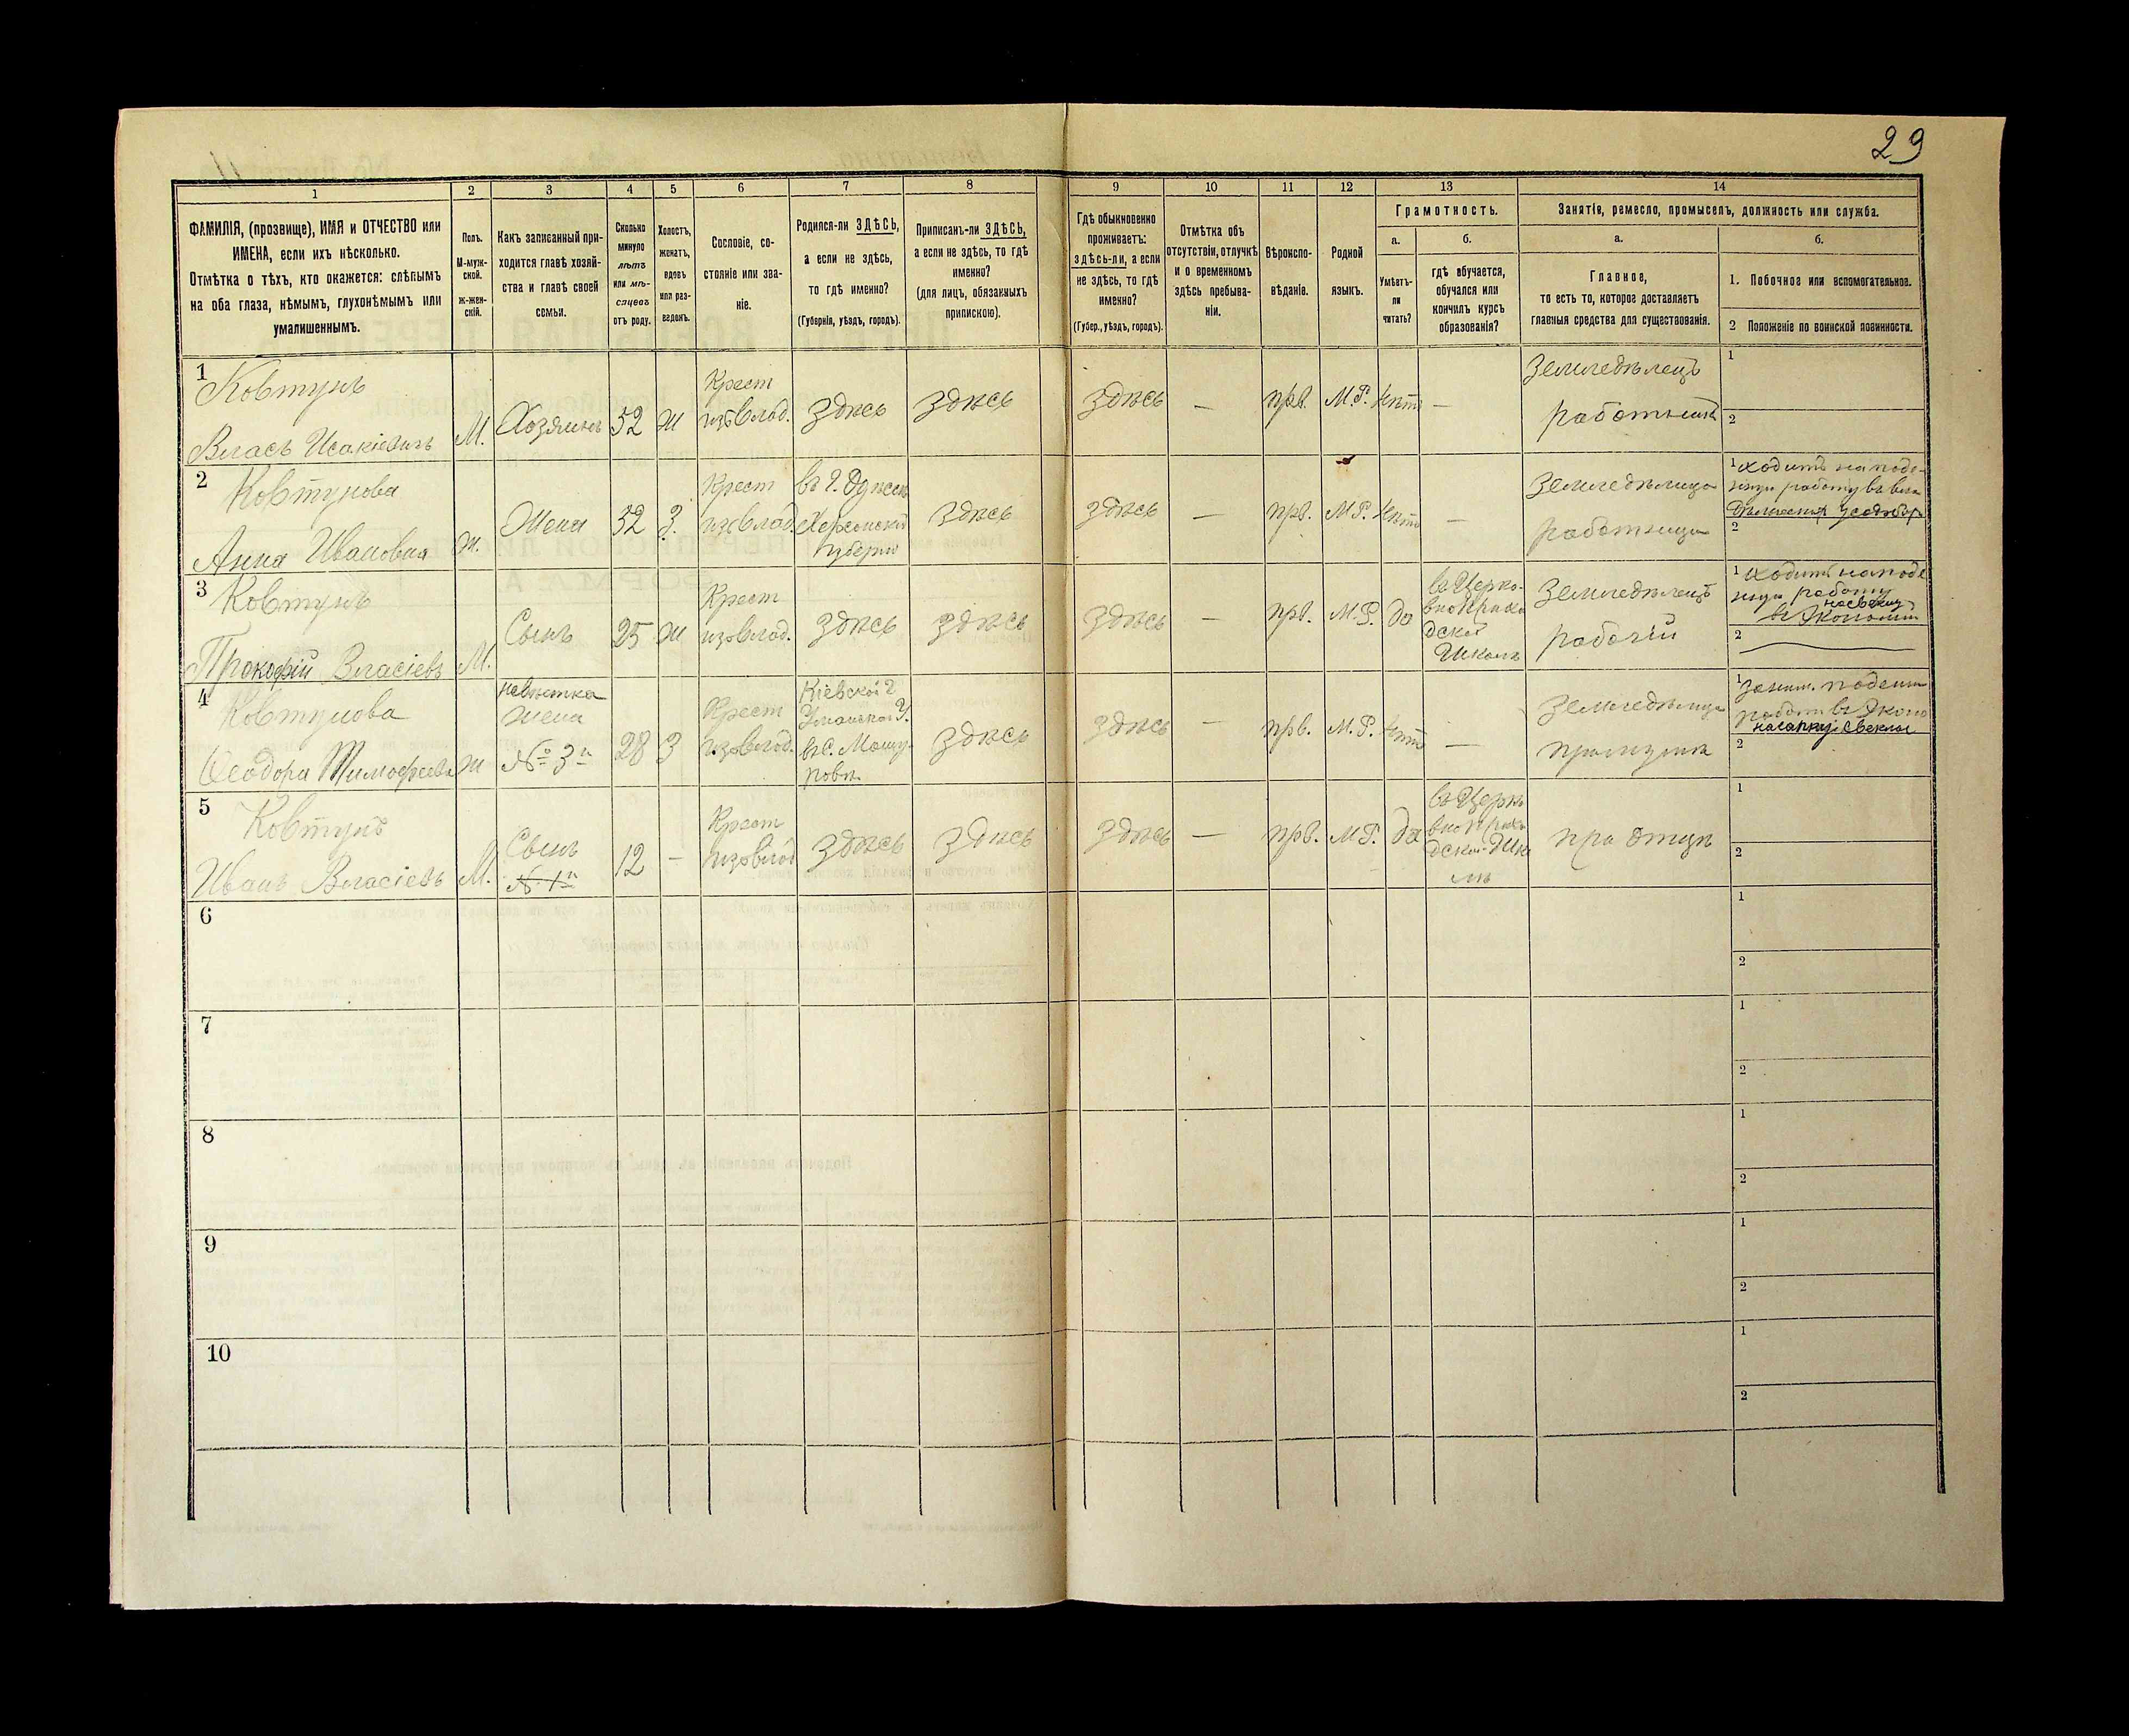 29
1
2
3
4
5
6
7
8
9
10
11
12
13
14
ФАМИЛІЯ, (прозвище), ИМЯ и ОТЧЕСТВО или
ИМЕНА, если ихъ нѣсколько.
Отмѣтка о тѣхъ, кто окажется: слѣпымъ
на оба глаза, нѣмымъ, глухонѣмымъ или
умалишеннымъ.
Полъ.
М-муж-
ской.
ж-жен-
скій.
Какъ записанный при-
ходится главѣ хозяй-
ства и главѣ своей
семьи.
Сколько
минуло
лѣтъ
или мѣ-
сяцевъ
отъ роду.
Холостъ,
женатъ,
вдовъ
или раз-
веденъ.
Сословіе, со-
стояніе или зва-
ніе.
Родился-ли ЗДѢСЬ,
а если не здѣсь,
то гдѣ именно?
(Губернія, уѣздъ, городъ).
Приписанъ-ли ЗДѢСЬ,
а если не здѣсь, то гдѣ
именно?
(для лицъ, обязанныхъ
припискою).
Гдѣ обыкновенно
проживаетъ:
здѣсь-ли, а если
не здѣсь, то гдѣ
именно?
(Губер., уѣздъ, городъ).
Отмѣтка объ
отсутствіи, отлучкѣ
и о временномъ
здѣсь пребыва-
ніи.
Вѣроиспо-
вѣданіе.
Родной
языкъ.
Грамотность.
а.
Умѣетъ-
ли
читать?
б.
гдѣ обучается,
обучался или
кончилъ курсъ
образованія?
Занятіе, ремесло, промыселъ, должность или служба.
а.
Главное,
то есть то, которое доставляетъ
главныя средства для существованія.
б.
1. Побочное или вспомогательное.
2 Положеніе по воинской повинности.
1
Ковтунъ
Власъ Исакіевичъ
М.
Хозяинъ
52
ж
Крест
изъ влад.
здѣсь
здѣсь
здѣсь
—
прв.
М.Р.
нѣтъ
—
Земледѣлецъ
работникъ
1
2
2
Ковтунова
Анна Ивановна
ж.
Жена
52
З.
Крест
изъ влад.
Въ г. Одессѣ
Херсонской
губерніи
здѣсь
здѣсь
—
прв.
М.Р.
нѣтъ
—
Земледѣлица
работница
1 ходитъ на поде-
нную работу въ
2
3
Ковтунъ
Прокофій Власіевъ
М.
Сынъ
25
ж
Крест
изъ влад.
здѣсь
здѣсь
здѣсь
—
прв.
М.Р.
да
въ Церко-
вно Прихо
дской
Школѣ
Земледѣлецъ
рабочій
1 ходитъ на поде
нную работу
въ Экономіи
2
4
Ковтунова
Ѳеодора Тимофеева
ж
невѣстка
жена
№ 3й
28
З
Крест
изъ влад.
Кіевской г
Уманьской У.
въ с. Машу-
ровѣ
здѣсь
здѣсь
—
прв.
М.Р.
нѣтъ
—
Земледѣлица
при мужѣ
1
2
5
Ковтунъ
Иванъ Власіевъ
М.
Сынъ
№ 1й
12
—
Крест
изъ влад
здѣсь
здѣсь
здѣсь
—
прв.
М.Р.
да
въ Церк
вно Прихо
дской Шко
лѣ
при отцѣ
1
2
6
1
2
7
1
2
8
1
2
9
1
2
10
1
2